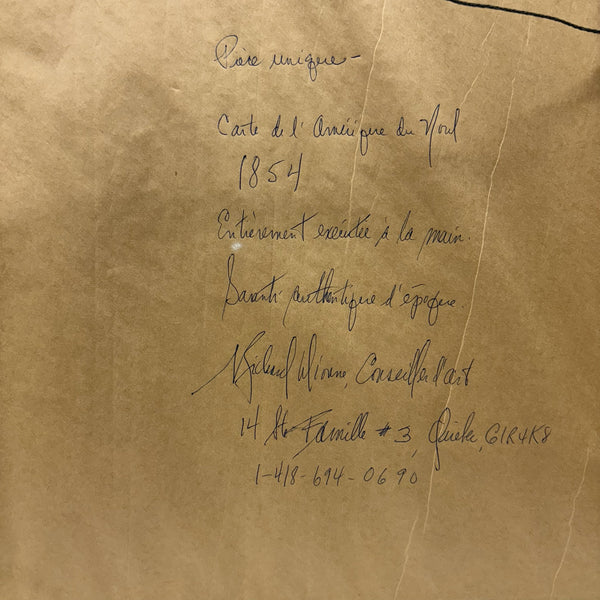 Pièce unique -
Carte de l'Amérique du Nord
1854
Entièrement exécutée à la main.
Garanti authentique d'époque.
Conseiller d'art
14 Ste Famille # 3, Québec, G1R4K8
1-418-694-0690